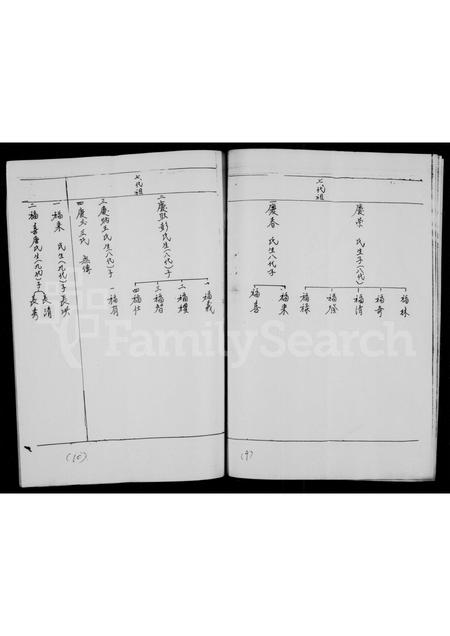 七代祖
慶榮 氏生子(八代)
福林
福奇
福清
福隆
福祿
一慶春 氏生八代子
福來
福喜
(9)
七代祖
二慶歐彭氏生(八代)子
一福義
二福禮
三福智
四福仕
三慶炳王氏生(八代)子
一福有
四慶玉立氏 無傳
一福來 氏生(九代)子長洪
二福喜唐氏生(九代)子長清
長秀
(10)
FamilySearch